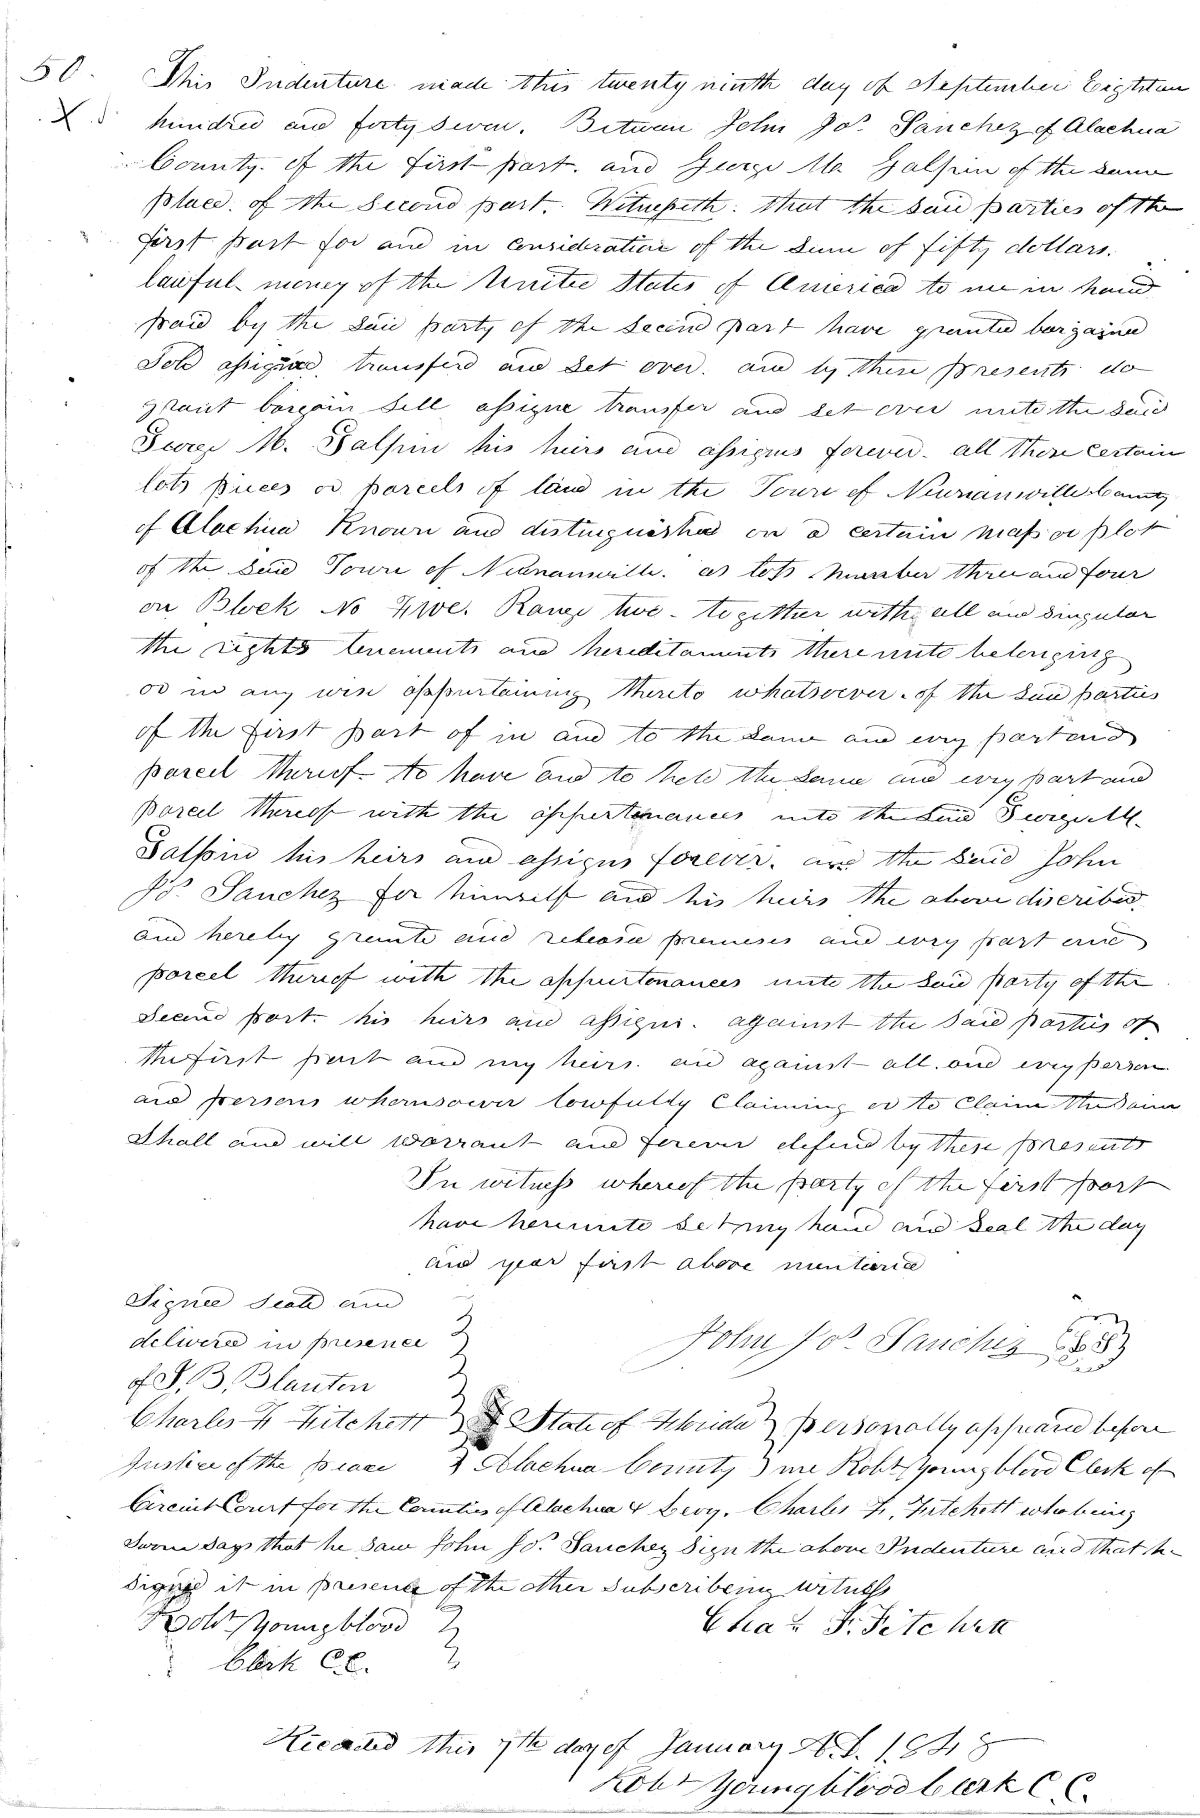 50.
X.
This Indenture made this twenty ninth day of September Eighteen
hundred and forty seven. Between John Jos. Sanchez of Alachua
County. of the first part. and George M. Galphin of the same
place. of the second part. Witnesseth. that the said parties of the
first part for and in consideration of the sum of fifty dollars.
lawful money of the United States of America to me in hand
paid by the said party of the second part have granted bargained
Sold assigned transferd and set over. and by these presents do
grant bargain sell assigne transfer and set over unto the said
George M. Galphin his heirs and assigns forever. all those certain
lots pieces or parcels of land in the Town of Newnansville County
of Alachua Known and distinguished on a certain map or plot
of the said Town of Newnansville. as lots number three and four
on Block No Five. Range two - together with all and singular
the rights tenements and hereditaments there unto belonging
or in any wise appurtaining thereto whatsoever. of the said parties
of the first part of in and to the same and evry part and
parcel thereof - to have and to hold the same and evry part and
parcel thereof with the appertenances unto the said George M.
Galphin his heirs and assigns forever. and the said John
Jos. Sanchez for himself and his heirs the above discribed
and hereby grante and release premises and evry part and
parcel thereof with the appurtonances unto the said party of the
second part. his heirs and assigns. against the said parties of
the first part and my heirs. and against all. and evry person
and persons whomsoever lawfully Claiming or to Claim the same
Shall and will warrant and forever defend by these presents
In witness whereof the party of the first part
have hereunto set my hand and seal the day
and year first above mentioned
Signed seald and
delivered in presence
of S. B. Blanton
John Jos. Sanchez
Charles F. Fitchett State of Florida personally appeared before
Justice of the peace Alachua County me Robt Youngblood Clerk of
Circuit Court for the Counties of Alachua & Levy. Charles F. Fitchett who being
sworn says that he saw John Jos. Sanchez Sign the above Indenture and that he
signed it in presence of the other subscribeing witness
Robt Youngblood
Chas. F. Fitchett
Clerk C.C.
Recorded this 7th day of January A.D. 1848
Robt Youngblood Clerk C. C.